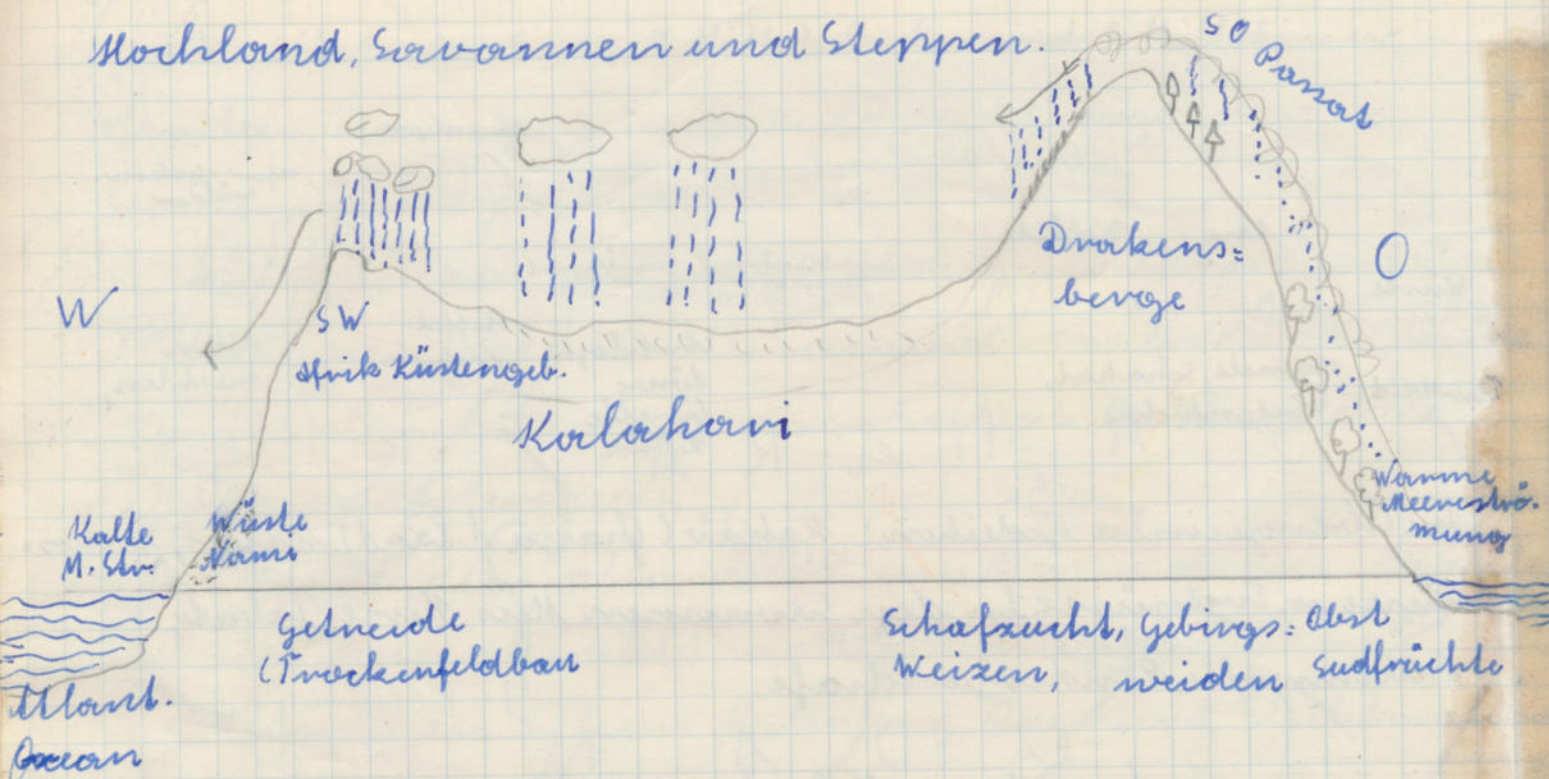 Hochland, Savannen und Steppen.
SO Passat
W
SW
Afrik Küstengeb.
Drakens=
berge
O
Kalahari
Kalte
M. Str.
Wüste
Nami
Warme
Meereströ-
mung
Getreide
(Trockenfeldbau
Schafzucht, Gebirgs= Obst
Weizen, weiden Sudfrüchte
Atlant.
Ozean